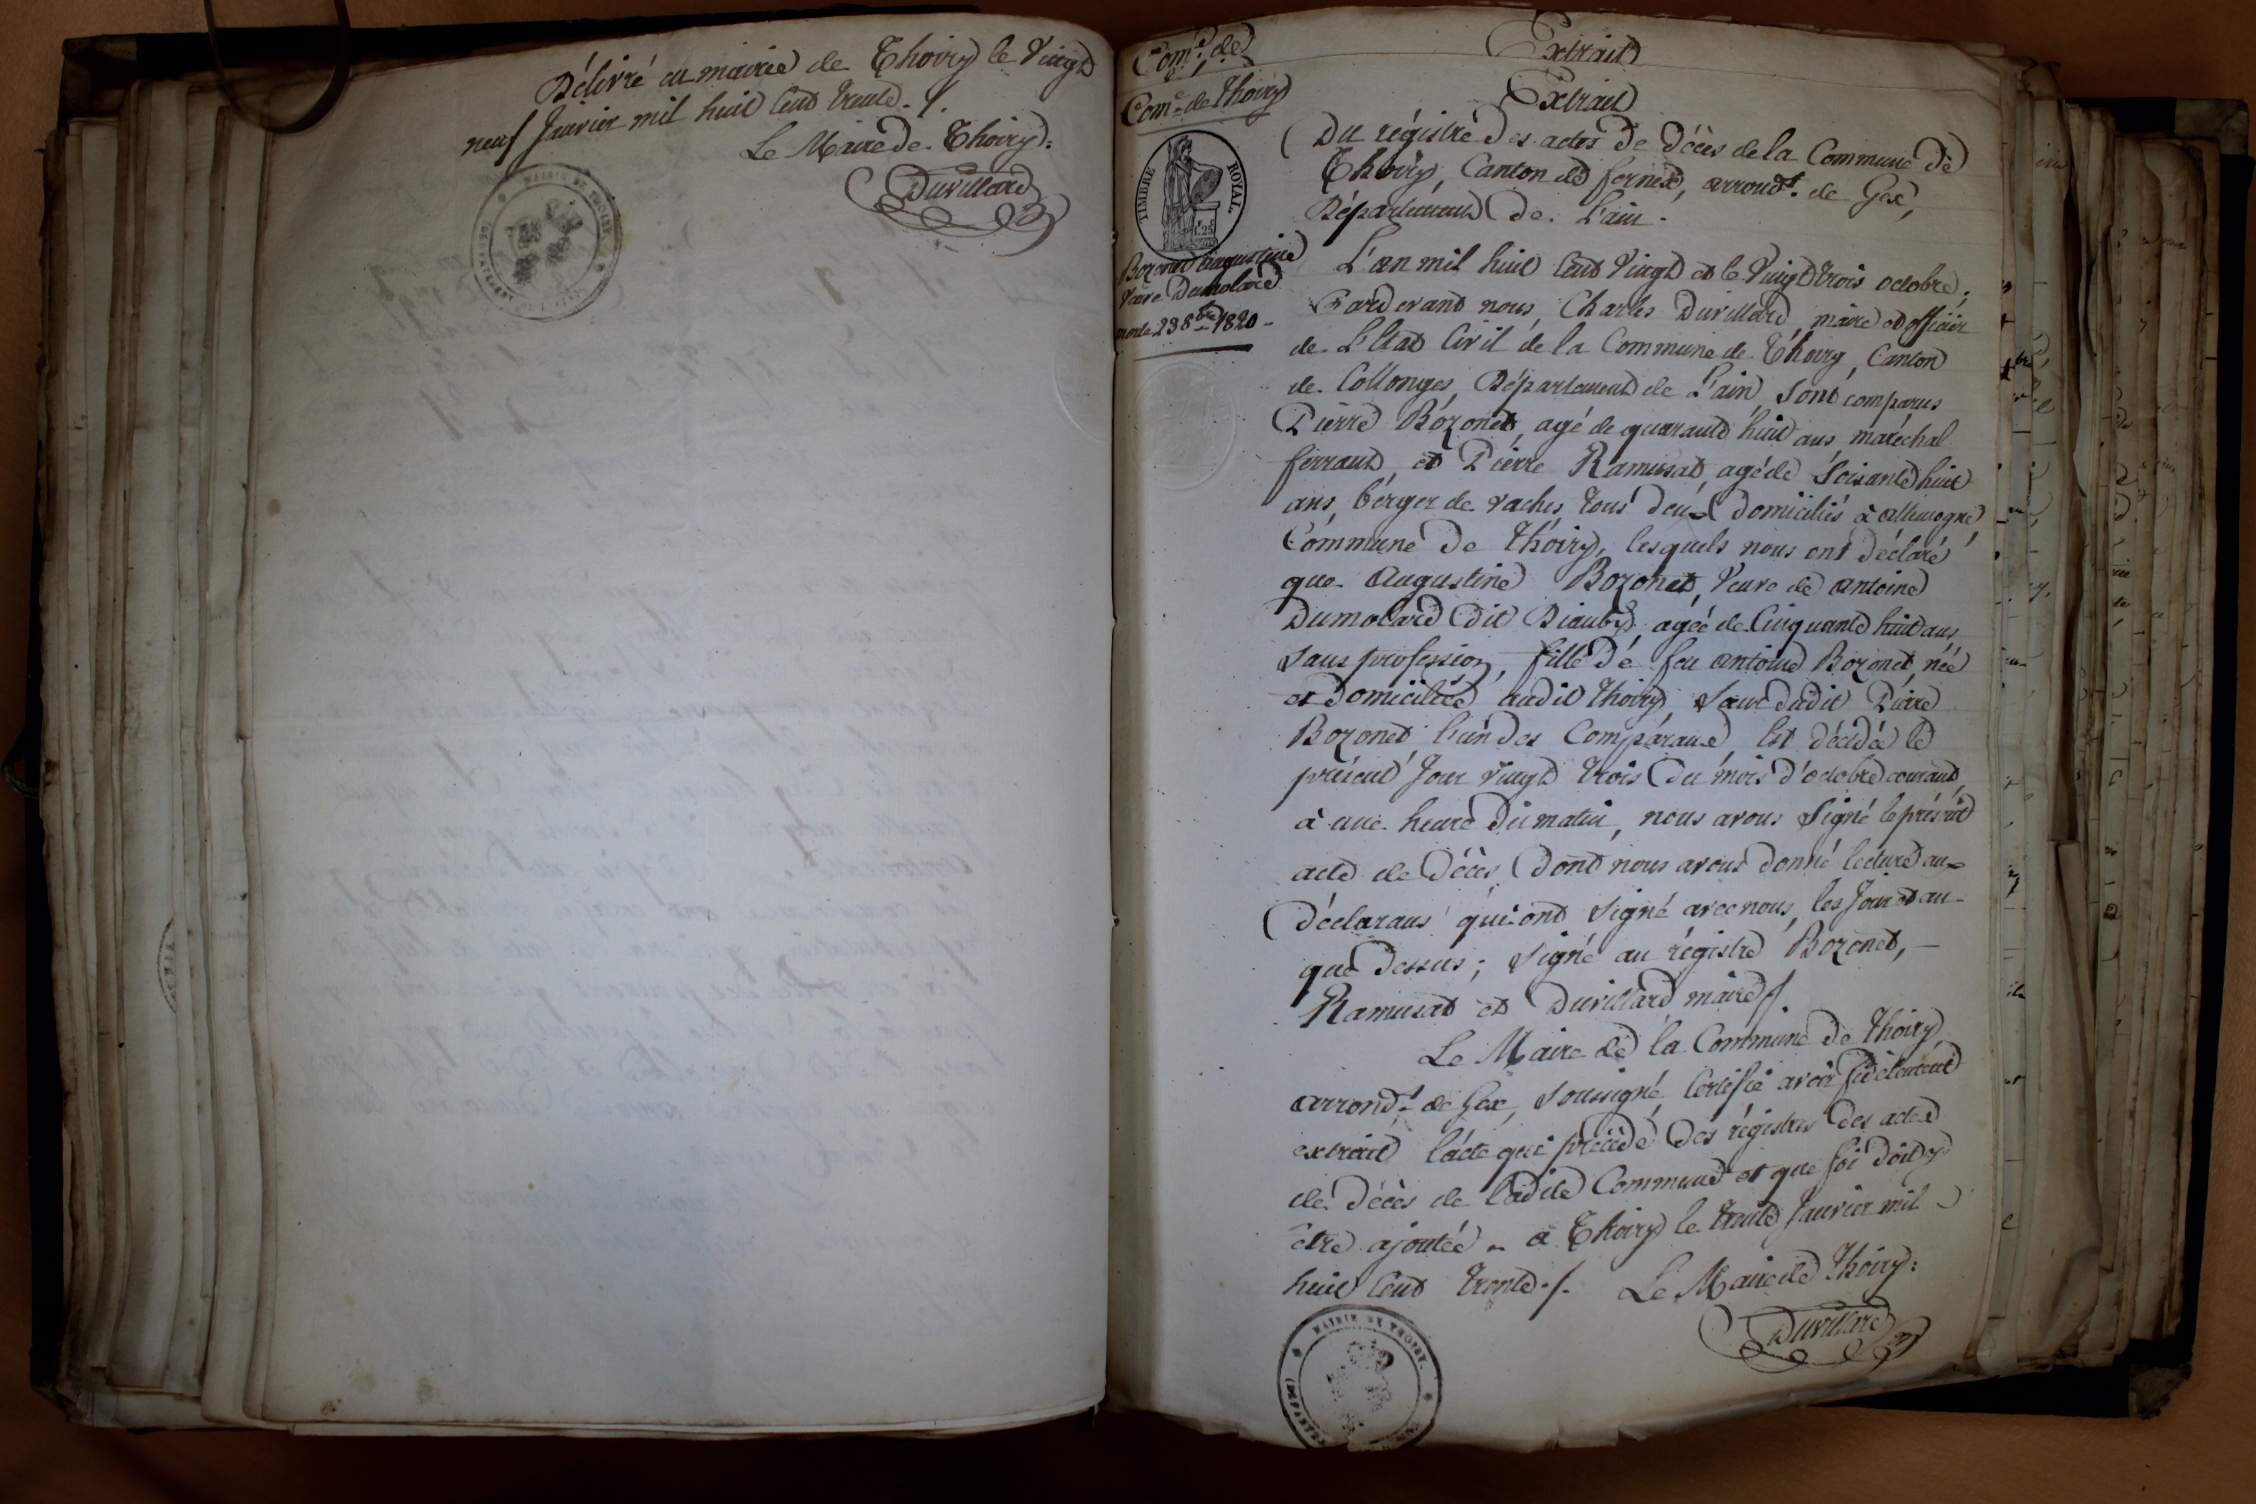 Délivré en mairie de Thoiry le vingt
neuf Janvier mil huit cent trente ./.
Le Maire de Thoiry:
Duvillard
MAIRIE DE THOIRY
Com.e de
Extrait
Com.e de Thoiry
Extrait
TIMBRE ROYAL
1f 25
Bozonet Augustine
veuve Dumolard
morte 23 8bre 1820
Du régistre des actes de décès de la Commune de
Thoiry, Canton de fernex, arrondt. de Gex,
Département de L'ain.
L'an mil huit cent vingt et le vingt trois octobre,
Pardevant nous, Charles Duvillard, maire et officier
de L'état Civil de la Commune de Thoiry, Canton
de Collonges, Département de L'ain, sont comparus
Pierre Bozonet, agé de quarante huit ans, maréchal
ferrant, et Pierre Ramusat, agé de Soisante huit
ans, bérger de vaches, tous deux domiciliés à allemogne,
Commune de Thoiry, lesquels nous ont déclaré
que Augustine Bozonet, veuve de antoine
Dumolard dit agée de Cinquante huit ans
sans profession, fille de feu antoine Bozonet, née
et domiciliée audit Thoiry, Sœur dudit Pierre
Bozonet l'un des Comparans, Est décédée le
présent Jour vingt trois du mois d'octobre courant,
à une heure du matin, nous avons Signé le présent
acte de décès dont nous avons donné lecture aux
déclarans qui ont signé avec nous, les Jour et an
que dessus; signé au régistre Bozonet, —
Ramusat et Duvillard maire ./.
Le Maire de la Commune de Thoiry
arrondt. de Gex, soussigné, Certifie avoir fidèlement
extrait l'acte qui précède des régistres des actes
de décès de ladite Commune et que foi doit y
être ajoutée - a Thoiry le trente Janvier mil
huit cent trente ./. Le Maire de Thoiry:
Duvillard
MAIRIE DE THOIRY